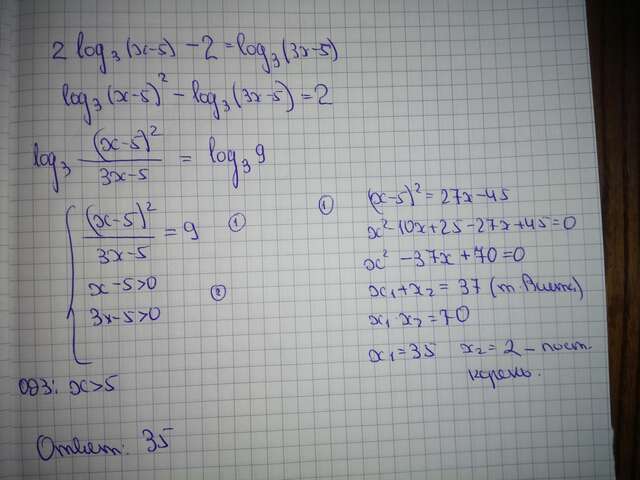 2 log₃(x-5) - 2 = log₃(3x-5)
log₃(x-5)² - log₃(3x-5) = 2
log₃ (x-5)²/3x-5 = log₃ 9
(x-5)²/3x-5 = 9 ①
x-5>0 ②
3x-5>0
ОДЗ: x>5
Ответ: 35
① (x-5)² = 27x-45
x²-10x+25-27x+45=0
x² -37x+70=0
x₁+x₂ = 37 (т. Виета)
x₁·x₂ = 70
x₁=35 x₂=2 - пост.
корень.